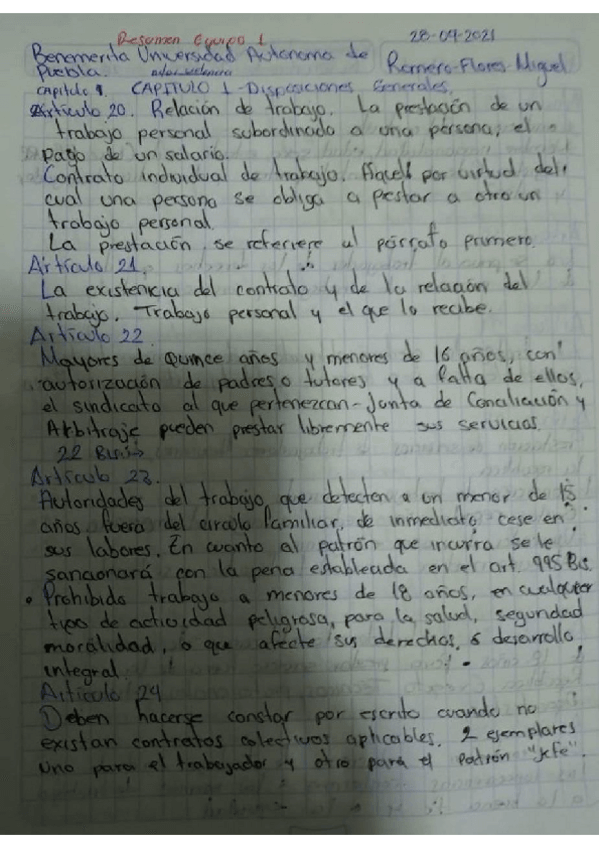 Resumen Equipo 1 28-04-2021
Benemerita Universidad Autonoma de Puebla. Romero-Flores-Miguel
capitulo 1. CAPITULO 1-Disposiciones Generales,
Artículo 20. Relación de trabajo. La prestación de un
trabajo personal subordinado a una persona, el
pago de un salario.
Contrato individual de trabajo. Aquel por virtud del
cual una persona se obliga a pestar a otro un
trabajo personal.
La prestación se referiere al párrafo primero.
Artículo 21.
La existenicia del contrato y de la relación del
trabajo. Trabajo personal y el que lo recibe.
Artículo 22
Mayores de Quince años y menores de 16 años, con
autorización de padres o tutores y a falta de ellos,
el sindicato al que pertenezcan-Junta de Conciliación y
Arbitraje pueden prestar libremente sus servicios.
22 Bis
Artículo 23.
Autoridades del trabajo que detecten a un menor de 15
años fuera del circulo familiar, de inmediato cese en
sus labores. En cuanto al patrón que incurra se le
sancionará con la pena establecida en el art. 995 Bis.
• Prohibido trabajo a menores de 18 años, en cualquier
tipo de actividad peligrosa, para la salud, seguridad
moralidad, o que afecte sus derechos, o desarrollo
integral.
Artículo 24
Deben hacerse constar por escrito cuando no
existan contratos colectivos aplicables. 2 ejemplares
uno para el trabajador y otro para el patrón "Jefe".